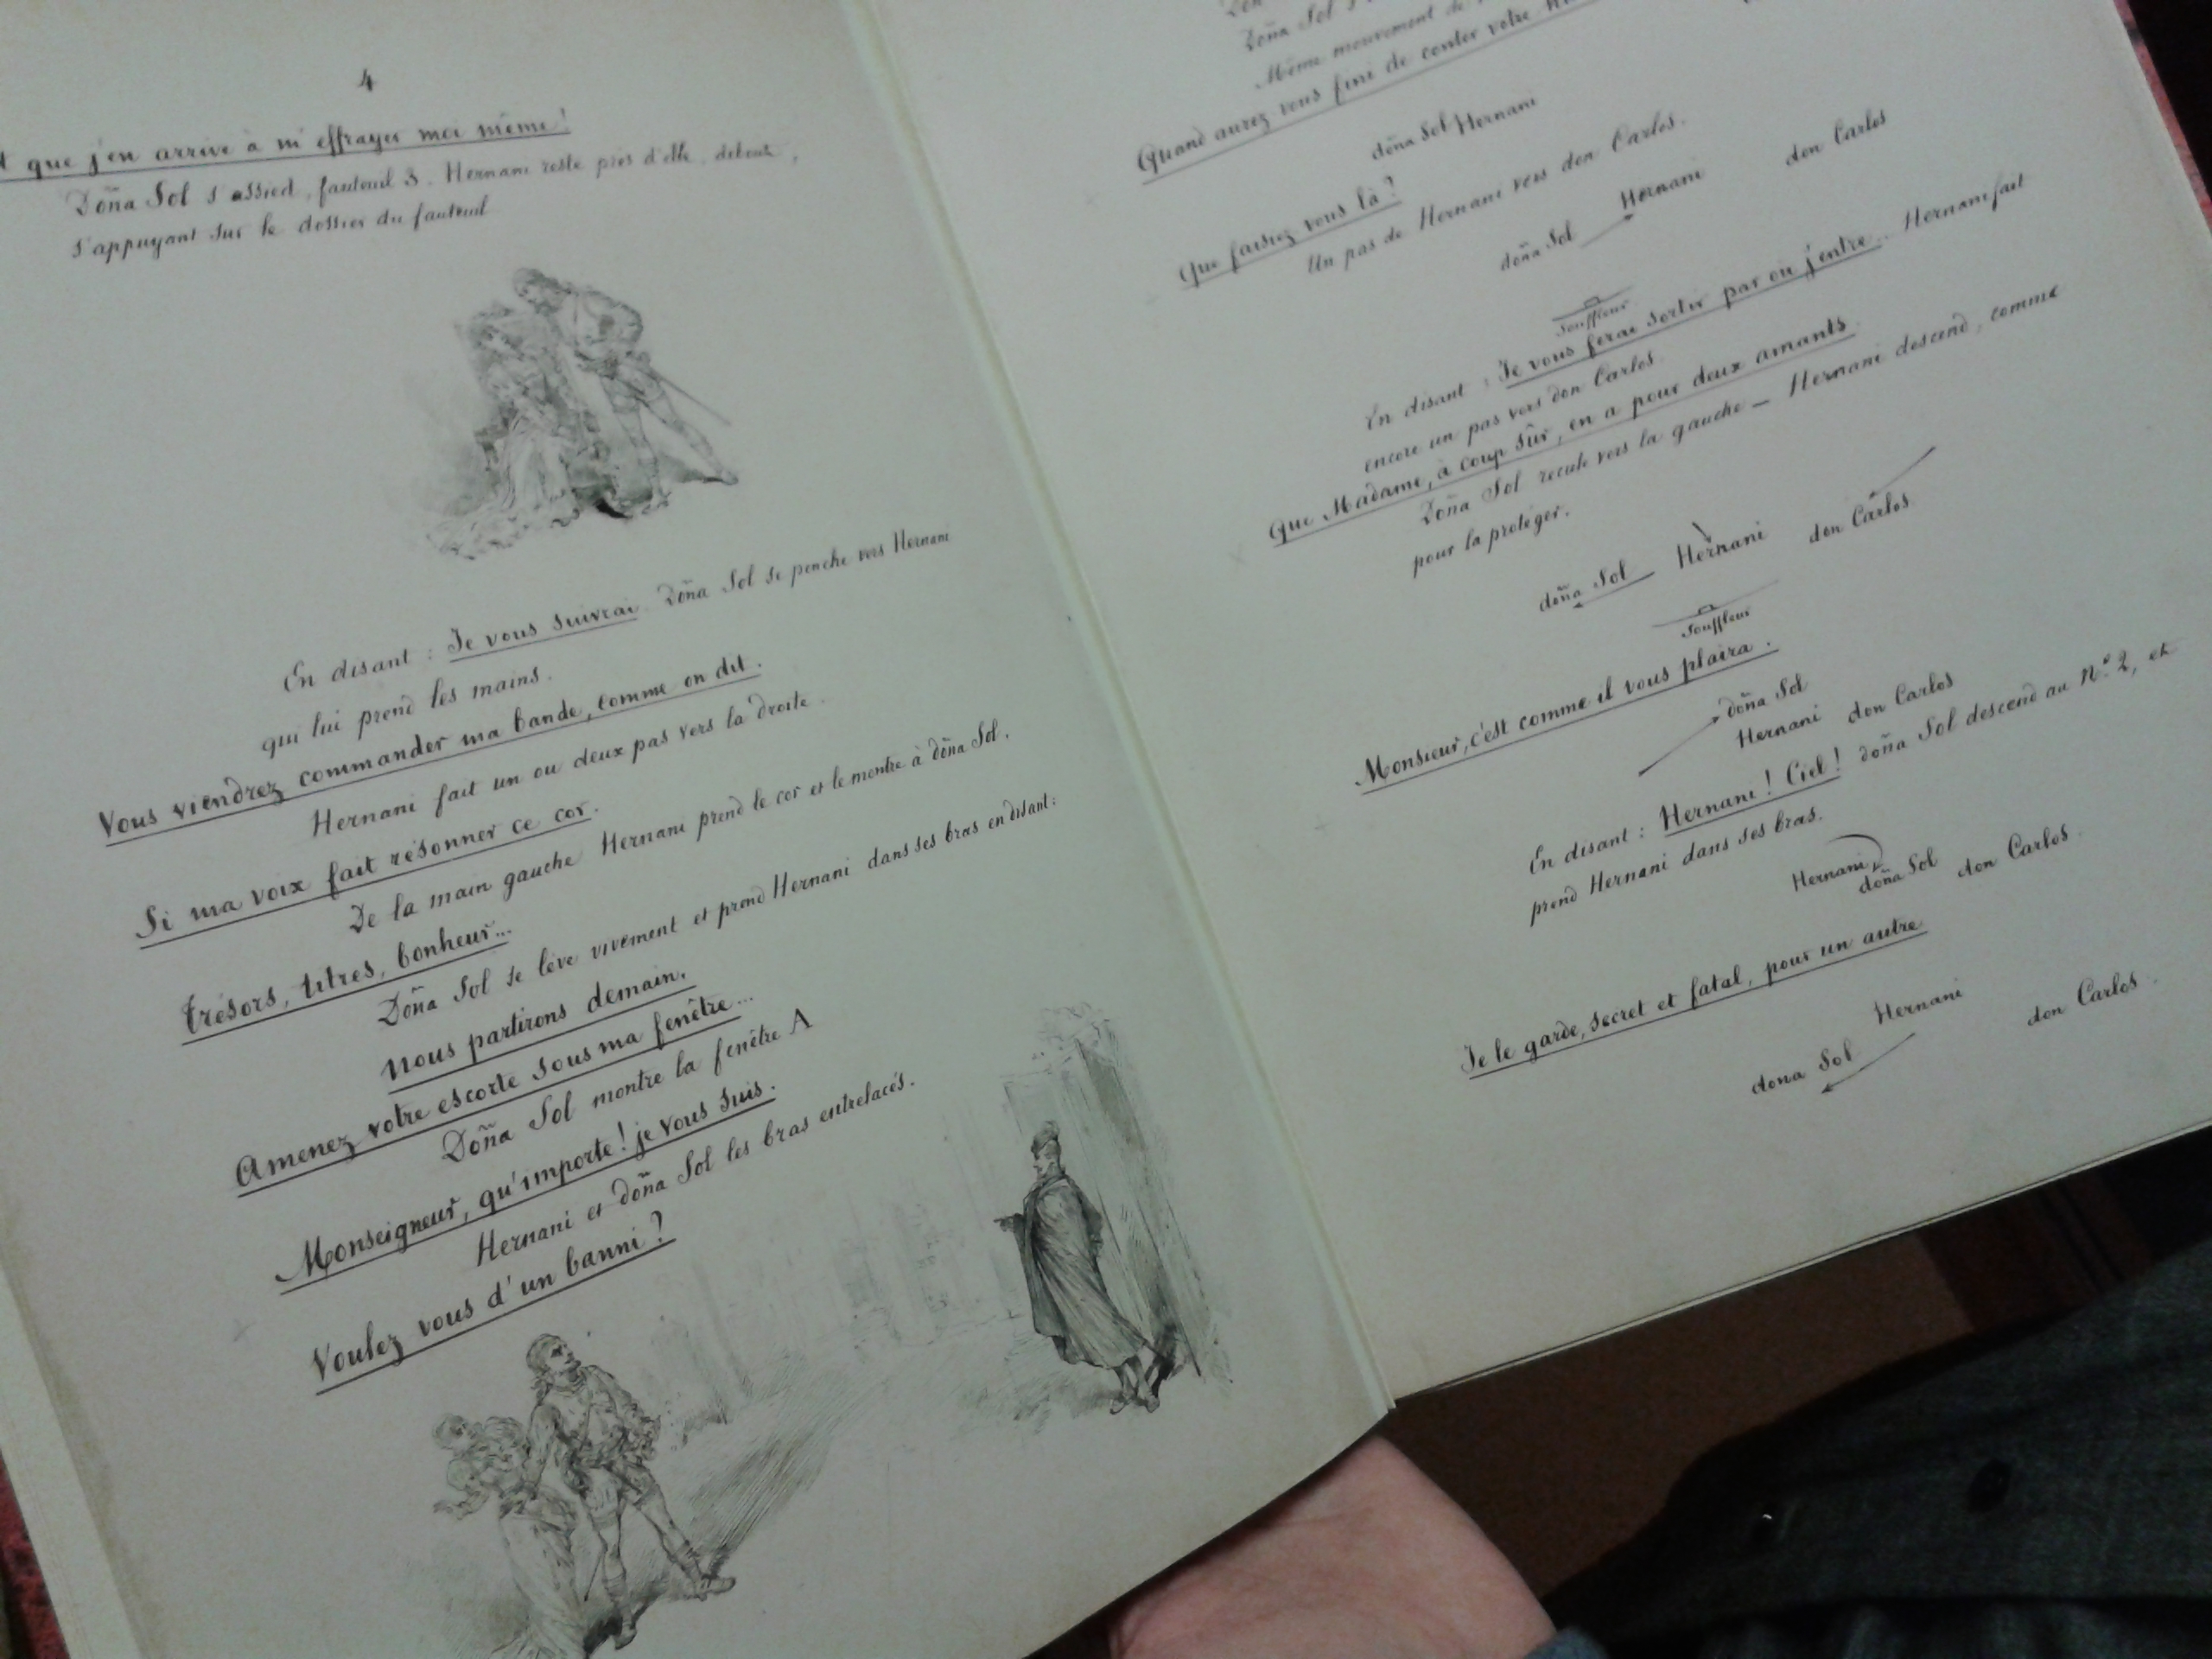 4
que j'en arrive à m'effrayer moi même!
Doña Sol s'assied, fauteuil 3. Hernani reste près d'elle, debout,
s'appuyant sur le dossier du fauteuil
En disant : Je vous suivrai Doña Sol se penche vers Hernani
qui lui prend les mains.
Vous viendrez commander ma bande, comme on dit.
Hernani fait un ou deux pas vers la droite.
Si ma voix fait résonner ce cor.
De la main gauche Hernani prend le cor et le montre à doña Sol.
Trésors, titres, bonheur...
Doña Sol se lève vivement et prend Hernani dans ses bras en disant:
Nous partirons demain.
Amenez votre escorte sous ma fenêtre...
Doña Sol montre la fenêtre A
Monseigneur, qu'importe! je vous suis.
Hernani et doña Sol les bras entrelacés.
Voulez vous d'un banni?
Doña Sol
Même mouvement de
Quand aurez vous fini de conter votre
doña Sol Hernani
Que faisiez vous là?
Un pas de Hernani vers don Carlos.
doña Sol Hernani don Carlos
Souffleur
En disant : Je vous ferai sortir par où j'entre.. Hernani fait
encore un pas vers don Carlos.
Que Madame, à coup sûr, en a pour deux amants.
Doña Sol recule vers la gauche — Hernani descend, comme
pour la protéger.
doña Sol Hernani don Carlos
Souffleur
Monsieur, c'est comme il vous plaira.
doña Sol
Hernani don Carlos
En disant : Hernani! Ciel! doña Sol descend au N° 2, et
prend Hernani dans ses bras.
Hernani doña Sol don Carlos
Je le garde, secret et fatal, pour un autre
doña Sol Hernani don Carlos.